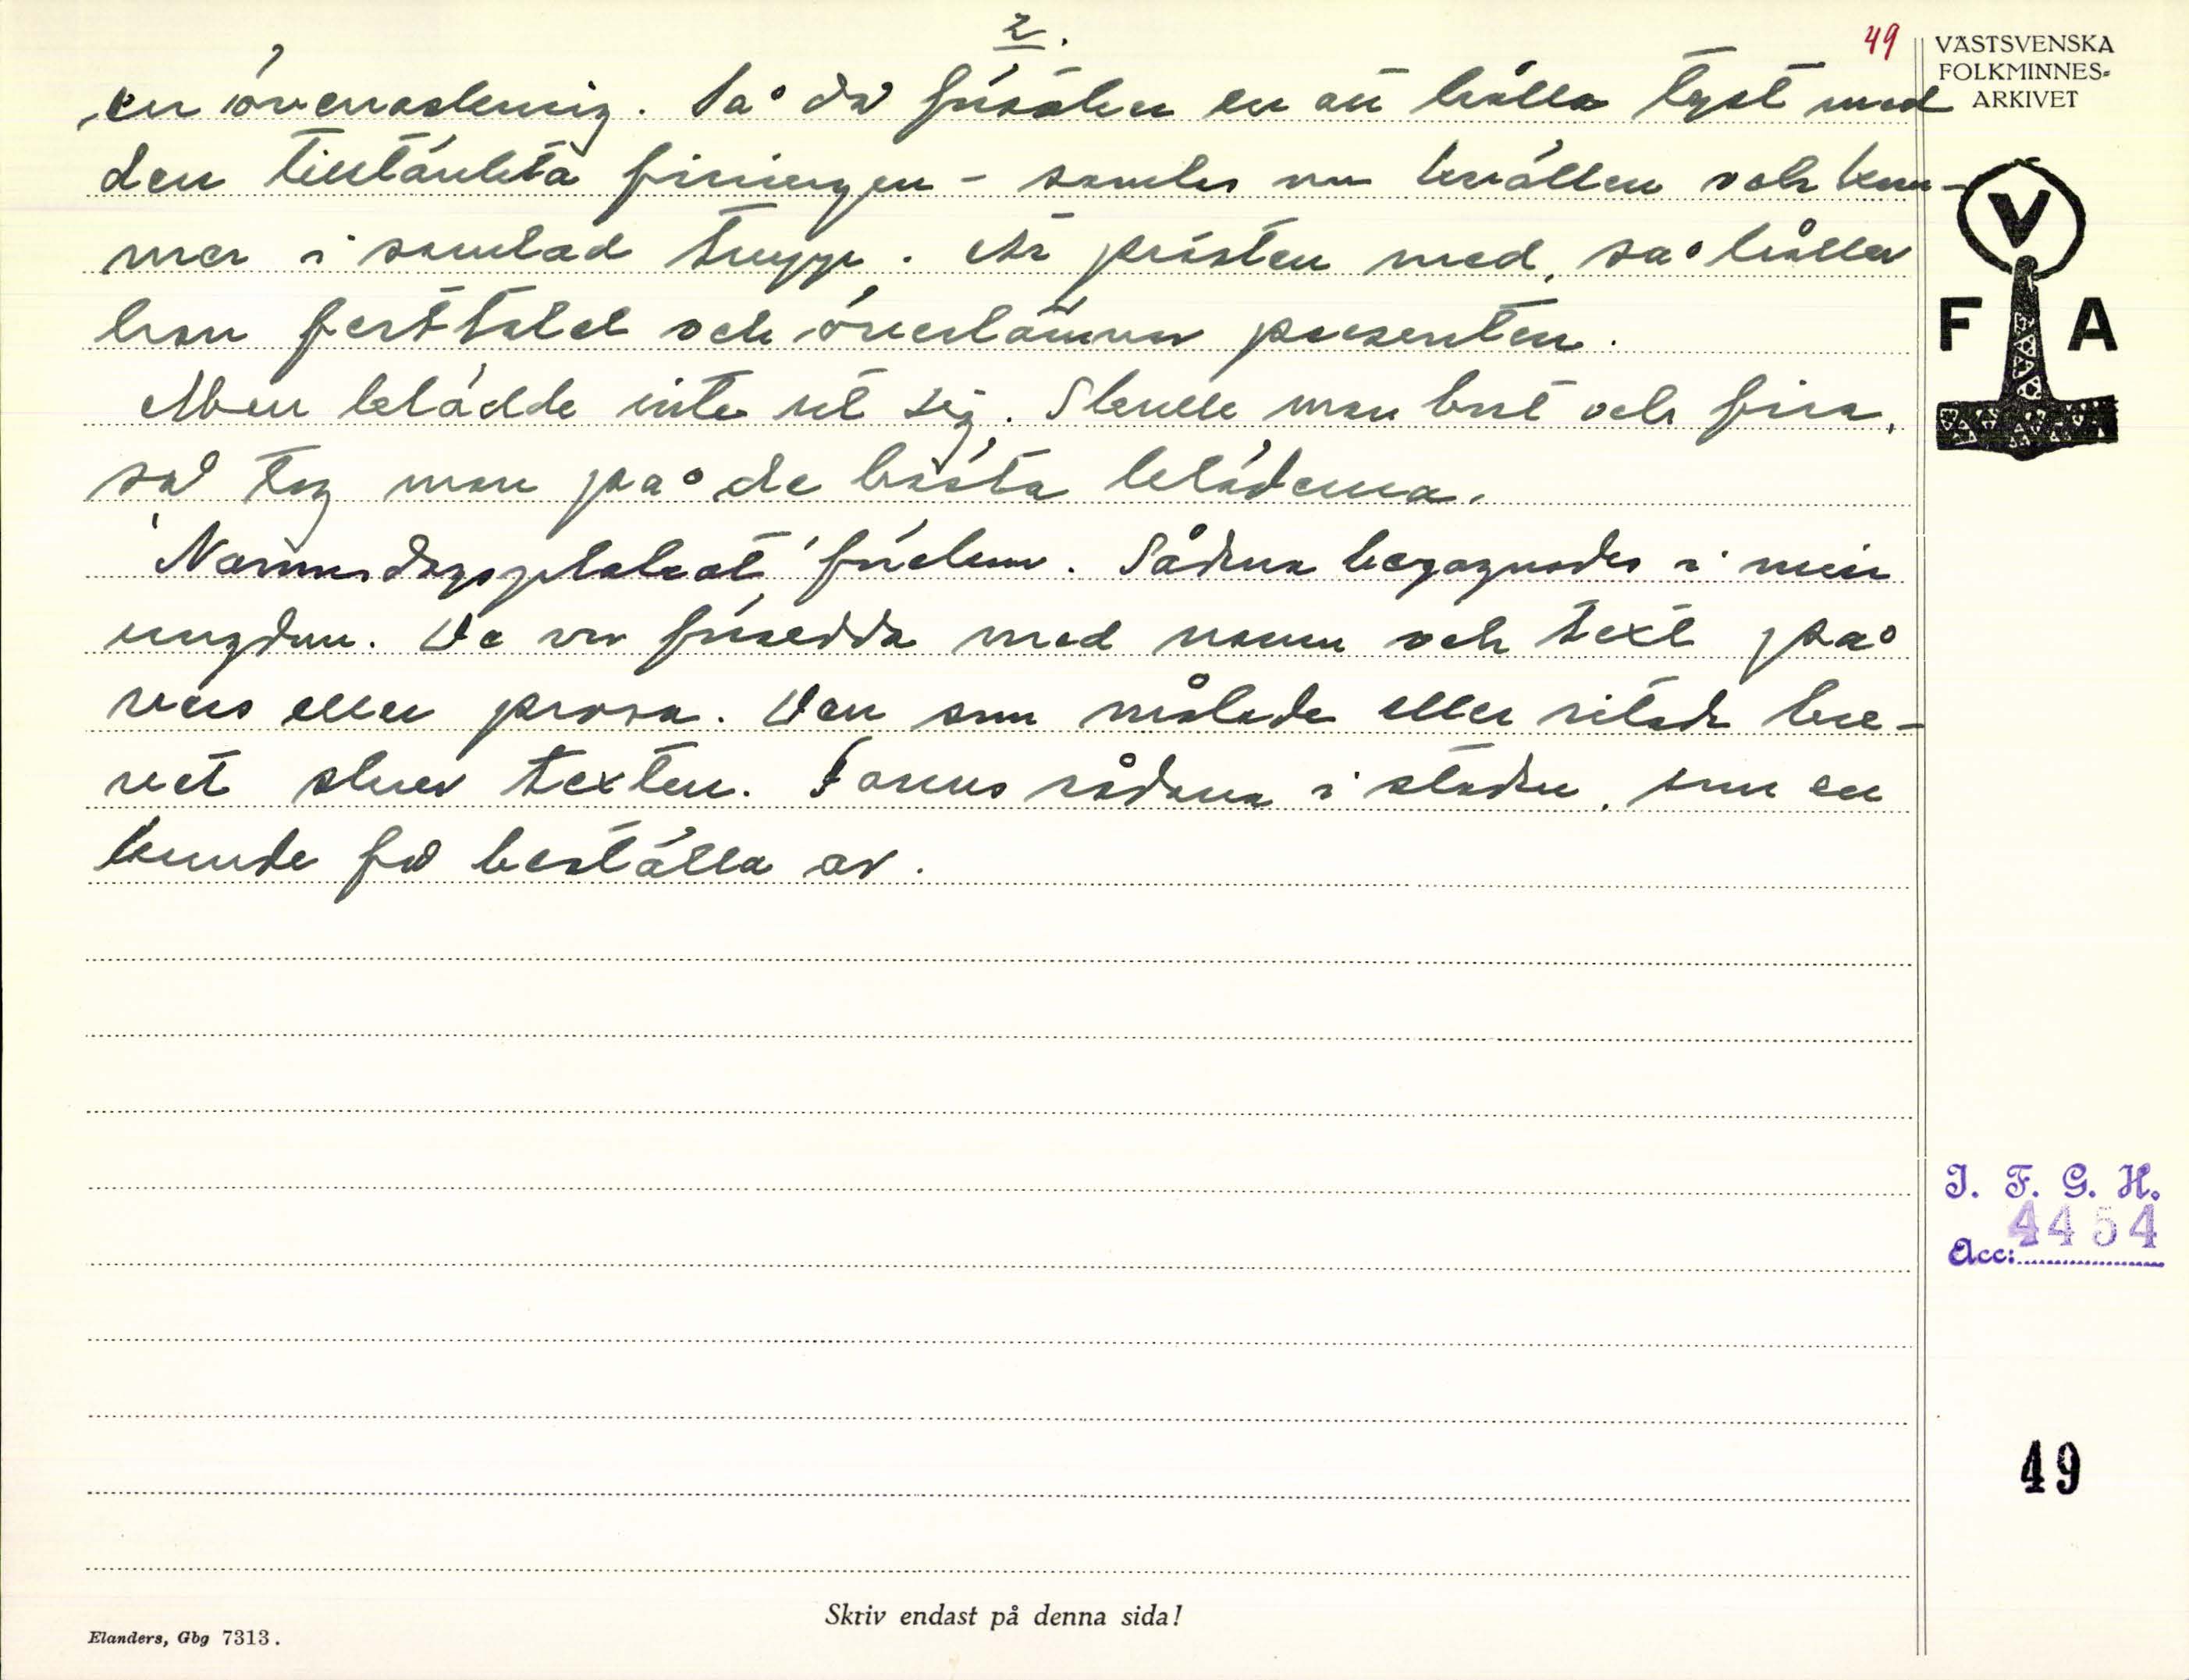 2.
49
VÄSTSVENSKA
FOLKMINNES-
ARKIVET
en överraskning. Så då försöker en att hålla tyst med
den tilltänkta firningen - samlas om kvällen och kom-
mer i samlad trupp. Är prästen med, så håller
han festtalet och överlämnar presenten.
Men klädde inte ut sig. Skulle man bort och fira,
så tog man på de bästa kläderna.
Namnsdagsplakat förekom. Sådana begagnades i min
ungdom. De var försedda med namn och text på
vers eller prosa. Den som målade eller ritade bre-
vet skrev texten. Fanns sådana i staden, som en
kunde få beställa av.
V
F A
I. F. G. H.
Acc: 4454
49
Skriv endast på denna sida!
Elanders, Gbg 7313.